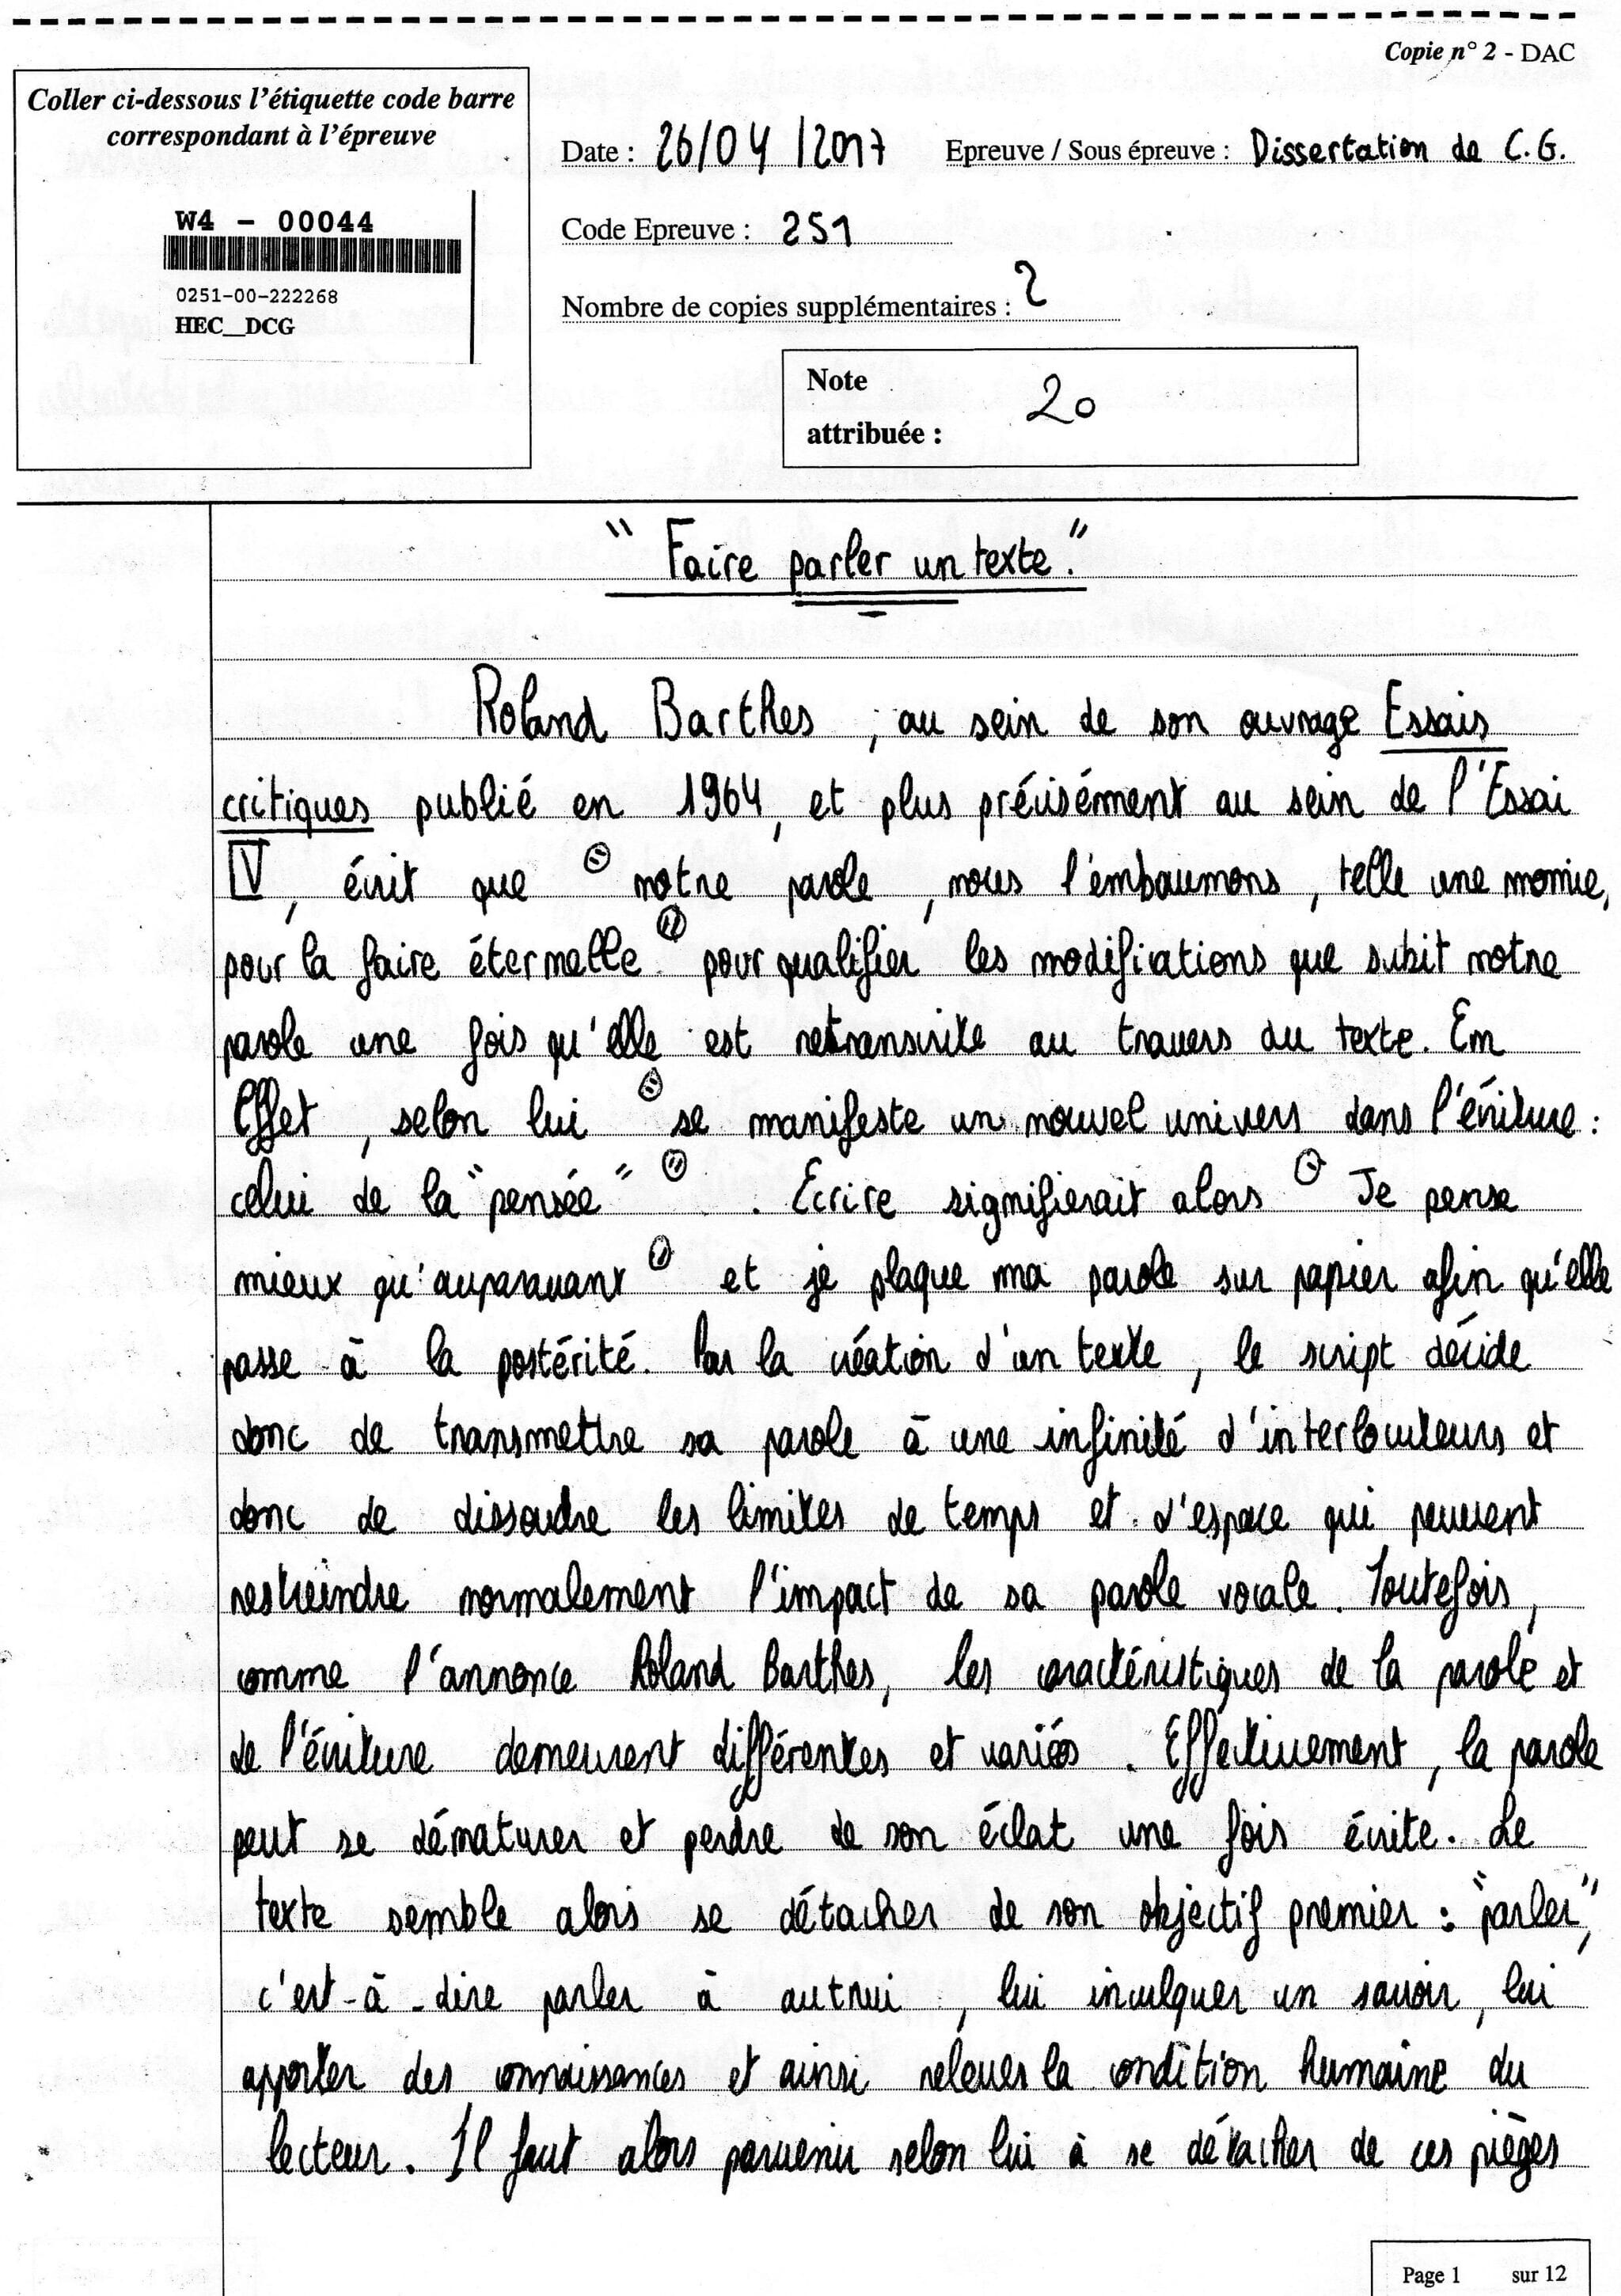 Copie n° 2 - DAC
Coller ci-dessous l'étiquette code barre
correspondant à l'épreuve
W4 - 00044
0251-00-222268
HEC_DCG
Date : 26/04/2017 Epreuve / Sous épreuve : Dissertation de C.G.
Code Epreuve : 251
Nombre de copies supplémentaires : 2
Note
attribuée : 20
"Faire parler un texte."
Roland Barthes, au sein de son ouvrage Essais
critiques publié en 1964, et plus précisément au sein de l'Essai
IV, écrit que "notre parole, nous l'embaumons, telle une momie,
pour la faire éternelle" pour qualifier les modifications que subit notre
parole une fois qu'elle est retranscrite au travers du texte. En
Effet, selon lui "se manifeste un nouvel univers dans l'écriture :
celui de la "pensée"". Ecrire signifierait alors "Je pense
mieux qu'auparavant" et je plaque ma parole sur papier afin qu'elle
passe à la postérité. Par la création d'un texte, le script décide
donc de transmettre sa parole à une infinité d'interlocuteurs et
donc de dissoudre les limites de temps et d'espace qui peuvent
restreindre normalement l'impact de sa parole vocale. Toutefois,
comme l'annonce Roland Barthes, les caractéristiques de la parole et
de l'écriture demeurent différentes et variées. Effectivement, la parole
peut se dématurer et perdre de son éclat une fois écrite. Le
texte semble alors se détacher de son objectif premier : "parler",
c'est-à-dire parler à autrui, lui inculquer un savoir, lui
apporter des connaissances et ainsi relever la condition humaine du
lecteur. Il faut alors parvenir selon lui à se détacher de ces pièges
Page 1 sur 12